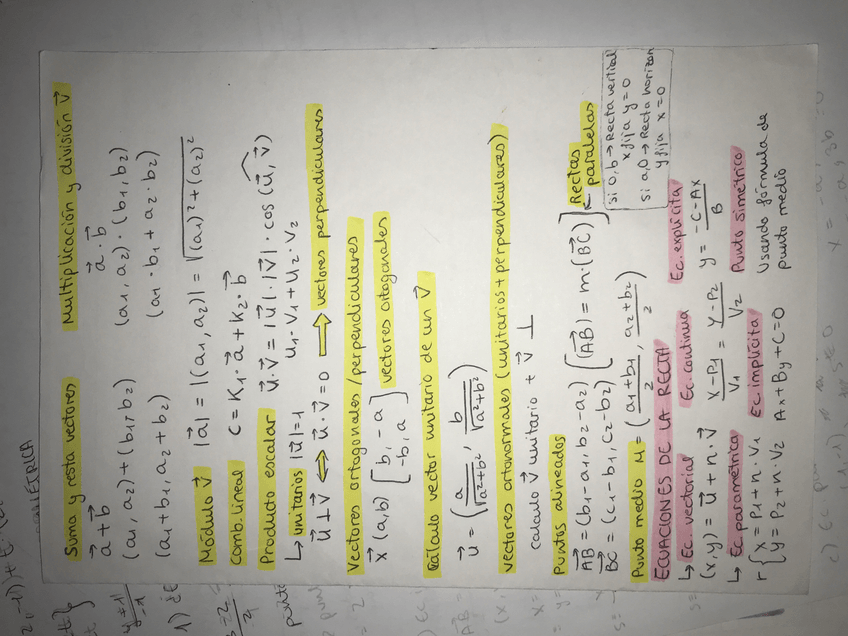 Suma y resta vectores
a⃗ + b⃗
(a1, a2) + (b1, b2)
(a1 + b1, a2 + b2)
Multiplicación y división v⃗
a⃗ · b⃗
(a1, a2) · (b1, b2)
(a1 · b1 + a2 · b2)
Módulo v⃗ |a⃗| = |(a1, a2)| = √(a1)² + (a2)²
Comb. lineal C = K1 · a⃗ + K2 · b⃗
Producto escalar u⃗ · v⃗ = |u⃗| · |v⃗| · cos (u⃗, v⃗)
↳ unitarios |u⃗| = 1 u1 · v1 + u2 · v2
u⃗ ⊥ v⃗ ⟺ u⃗ · v⃗ = 0 ⟹ vectores perpendiculares
Vectores ortogonales / perpendiculares
x⃗ (a, b) [ b, -a
-b, a ] vectores ortogonales
Cálculo vector unitario de un v⃗
u⃗ = ( a / √a² + b² , b / √a² + b² )
vectores ortonormales (unitarios + perpendiculares)
calculo v⃗ unitario + v⃗ ⊥
Puntos alineados
AB⃗ = (b1 - a1, b2 - a2)
BC⃗ = (c1 - b1, c2 - b2)
[ (AB⃗) = m · (BC⃗) ] Rectas
paralelas
si 0, b → Recta vertical
x fija y = 0
si a, 0 → Recta horizon
y fija x = 0
Punto medio M = ( a1 + b1 / 2 , a2 + b2 / 2 )
ECUACIONES DE LA RECTA
↳ Ec. vectorial
(x y) = u⃗ + n · v⃗
Ec. continua
x - P1 / V1 = y - P2 / V2
Ec. explícita
y = -C - Ax / B
↳ Ec. paramétrica
r { x = P1 + n · V1
y = P2 + n · V2
Ec. implícita
Ax + By + C = 0
Punto simétrico
Usando fórmula de
punto medio